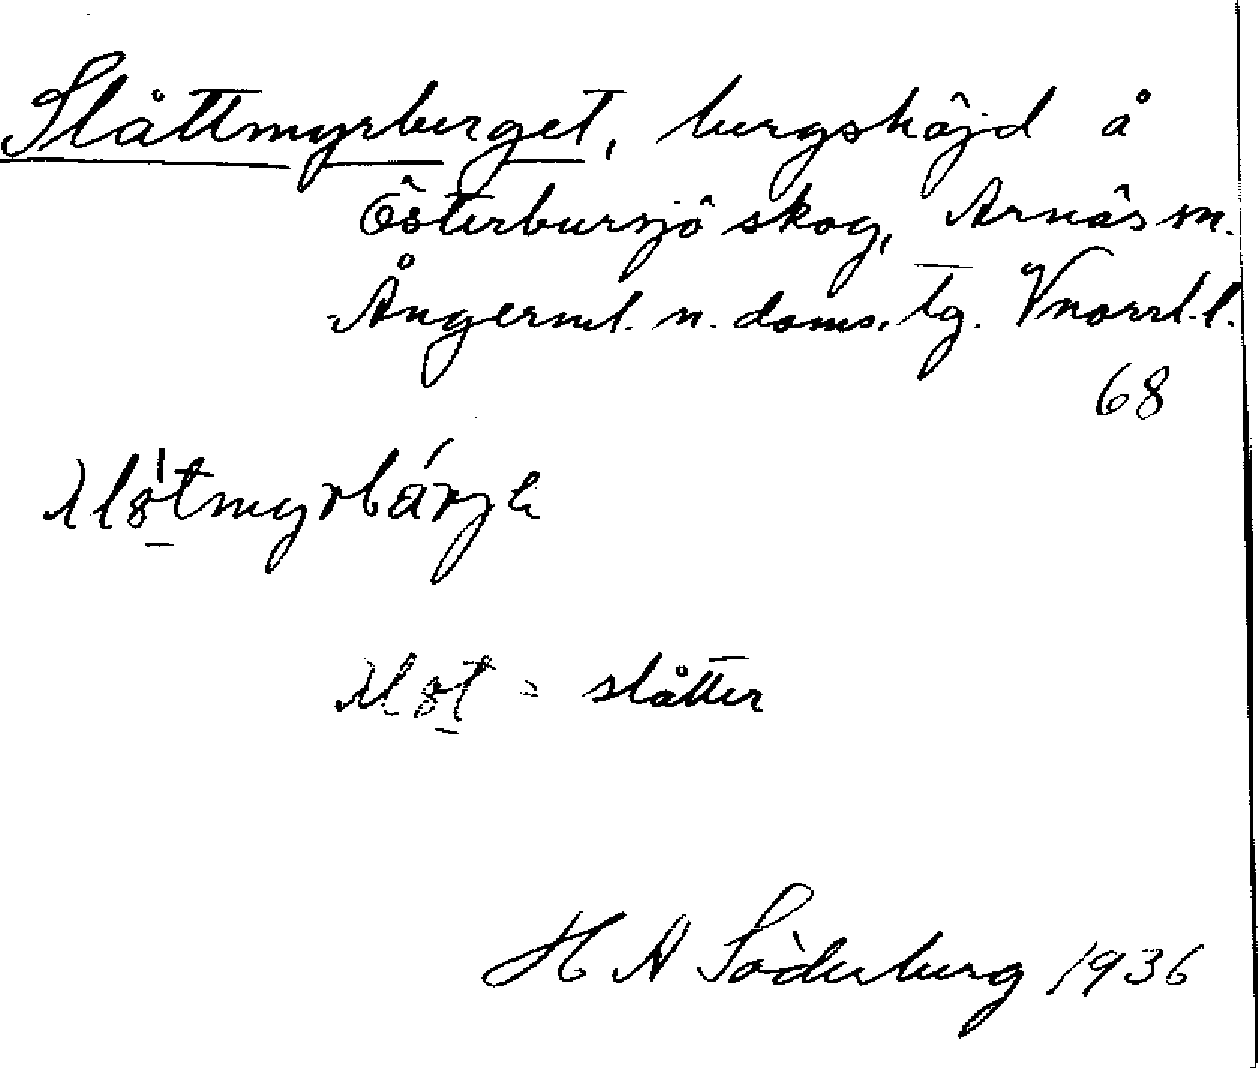 Slåttmyrberget, bergshöjd å
Österbursjö skog, Arnäs sn.
Ångerml. n. doms. tg. Vnorrl. l.
68
slåttmyrbärje
slåt = slåtter
H A Söderberg 1936